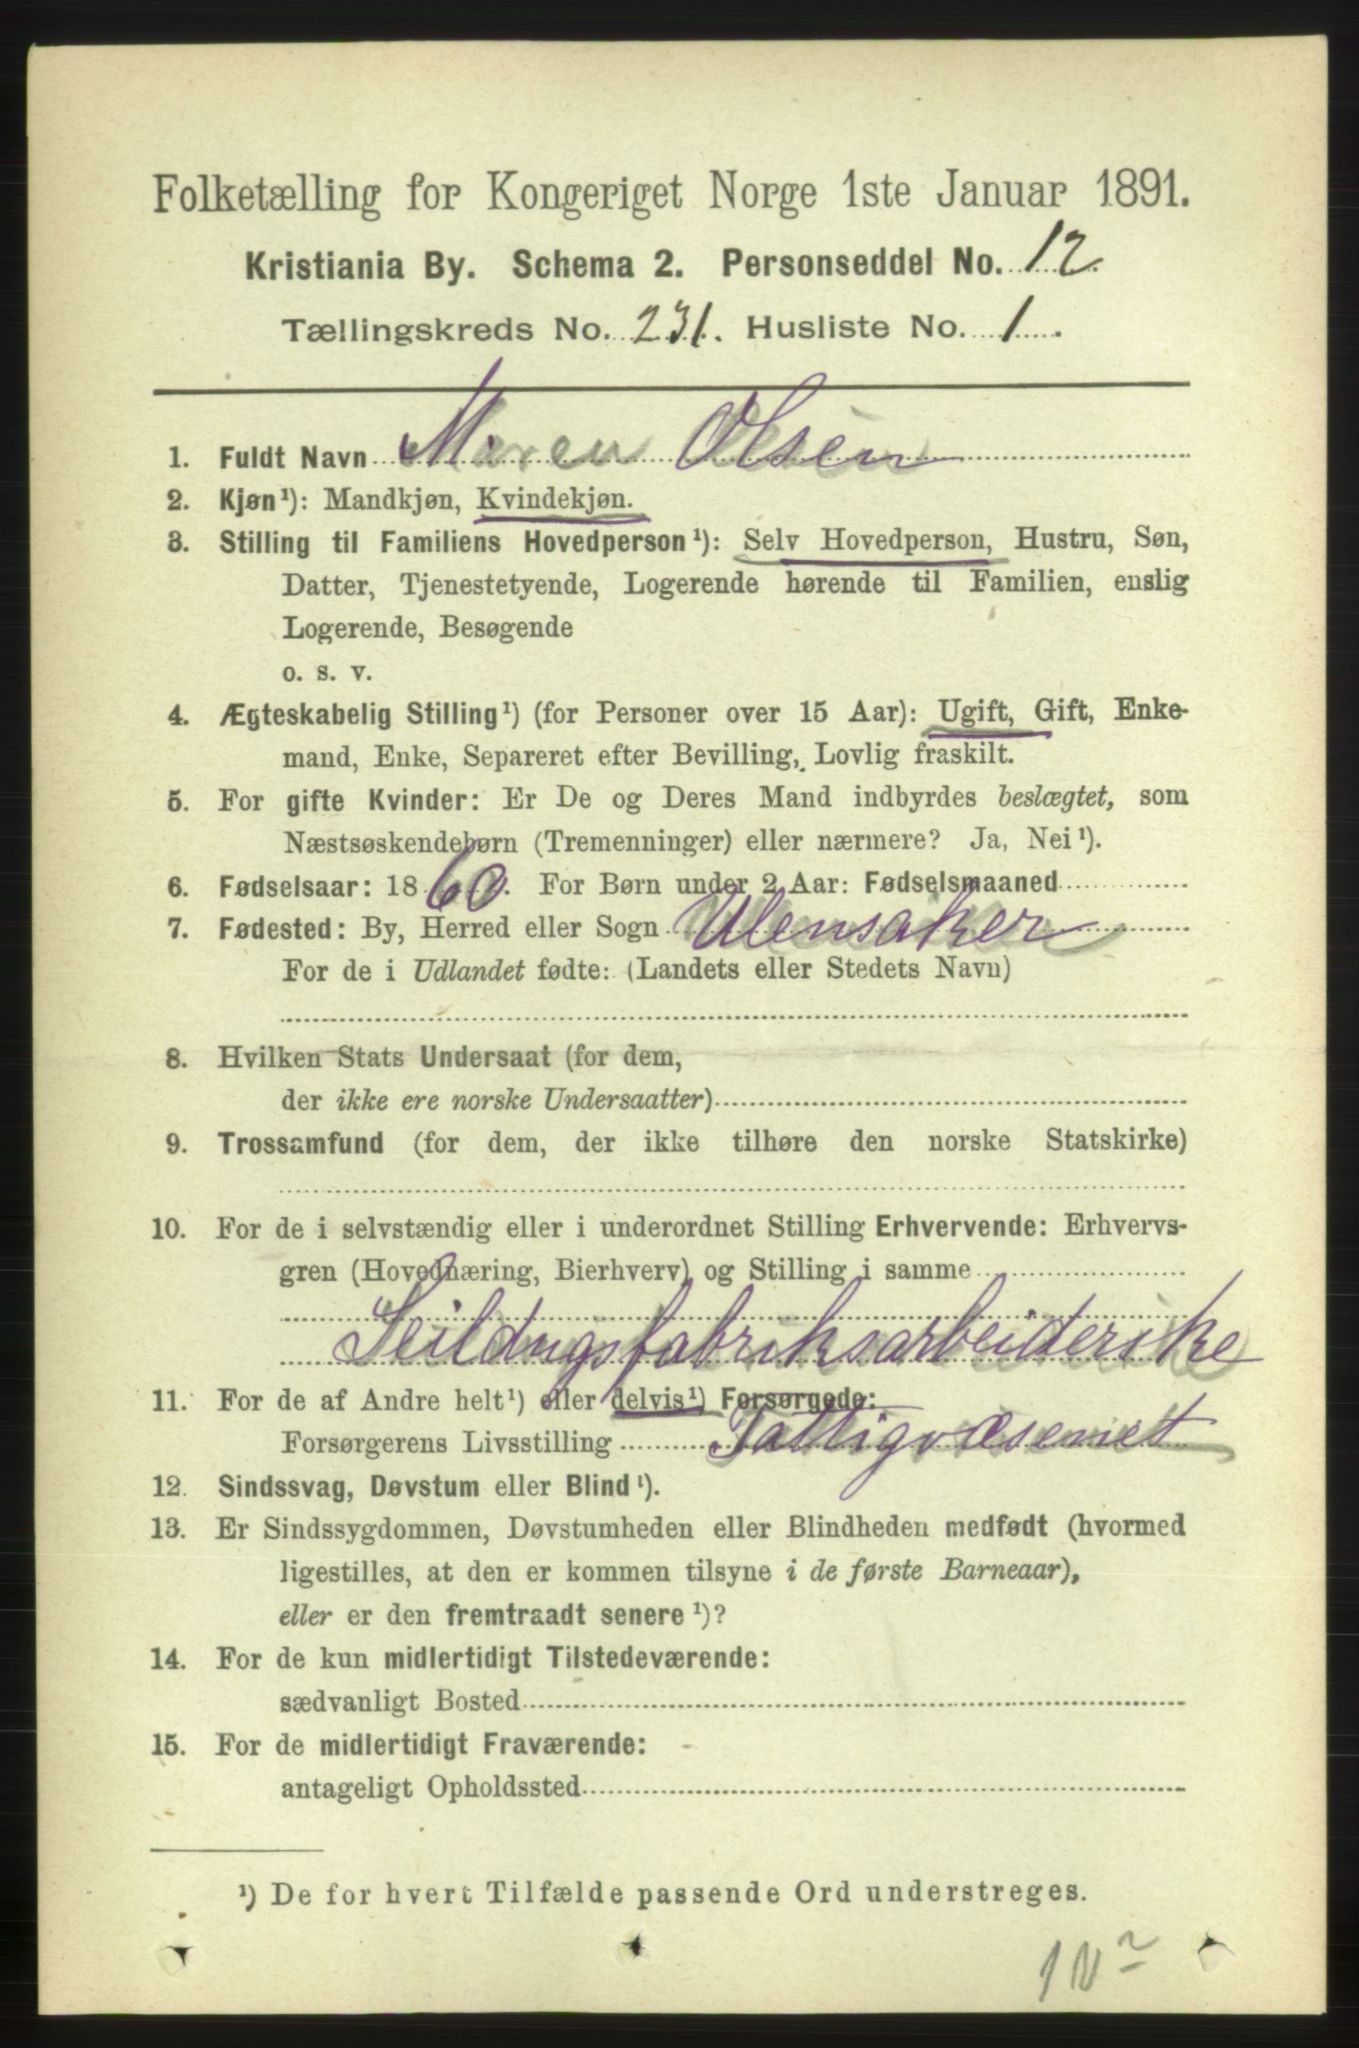 Folketælling for Kongeriget Norge 1ste Januar 1891.
Kristiania By. Schema 2. Personseddel No. 12.
Tællingskreds No. 231. Husliste No. 1.
1. Fuldt Navn Maren Olsen
2. Kjøn¹): Mandkjøn, Kvindekjøn.
3. Stilling til Familiens Hovedperson¹): Selv Hovedperson, Hustru, Søn,
Datter, Tjenestetyende, Logerende hørende til Familien, enslig
Logerende, Besøgende
o. s. v.
4. Ægteskabelig Stilling¹) (for Personer over 15 Aar): Ugift, Gift, Enke-
mand, Enke, Separeret efter Bevilling, Lovlig fraskilt.
5. For gifte Kvinder: Er De og Deres Mand indbyrdes beslægtet, som
Næstsøskendebørn (Tremenninger) eller nærmere? Ja, Nei¹).
6. Fødselsaar: 1860. For Børn under 2 Aar: Fødselsmaaned
7. Fødested: By, Herred eller Sogn Ulensaker
For de i Udlandet fødte: (Landets eller Stedets Navn)
8. Hvilken Stats Undersaat (for dem,
der ikke ere norske Undersaatter)
9. Trossamfund (for dem, der ikke tilhøre den norske Statskirke)
10. For de i selvstændig eller i underordnet Stilling Erhvervende: Erhvervs-
gren (Hovednæring, Bierhverv) og Stilling i samme
Seildugsfabriksarbeiderske
11. For de af Andre helt¹) eller delvis¹) Forsørgede:
Forsørgerens Livsstilling Fattigvæsenet
12. Sindssvag, Døvstum eller Blind¹).
13. Er Sindssygdommen, Døvstumheden eller Blindheden medfødt (hvormed
ligestilles, at den er kommen tilsyne i de første Barneaar),
eller er den fremtraadt senere¹)?
14. For de kun midlertidigt Tilstedeværende:
sædvanligt Bosted
15. For de midlertidigt Fraværende:
antageligt Opholdssted
¹) De for hvert Tilfælde passende Ord understreges.